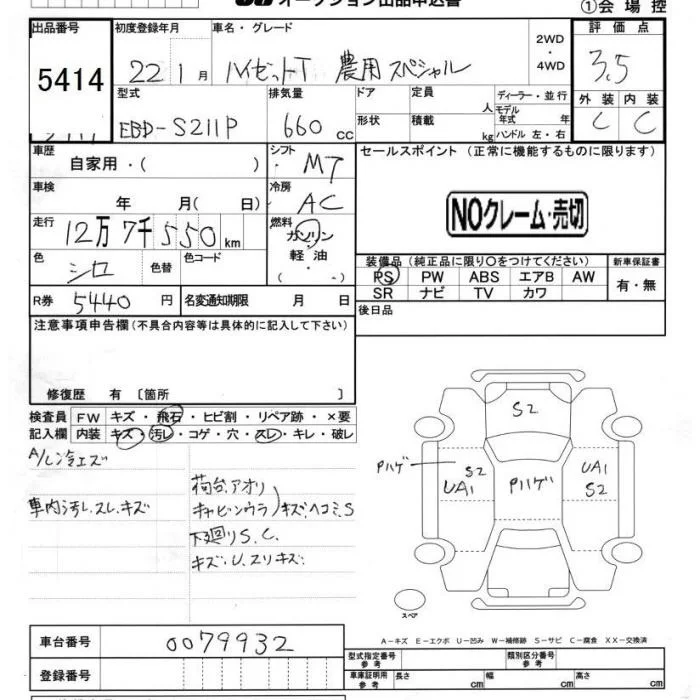 オークション出品申込書
①会場控
出品番号 初度登録年月 車名・グレード 2WD・4WD 評価点
5414 22 1月 ハイゼットT 農用スペシャル 3.5
型式 排気量 ドア 定員 人 ディーラー・並行 外装 内装
EBD-S211P 660 cc 形状 積載 kg モデル年式 年 ハンドル 左・右 C C
車歴 自家用・( ) シフト MT セールスポイント (正常に機能するものに限ります)
車検 年 月( 日) 冷房 AC
NOクレーム・売切
走行 12万7千550km 燃料 ガソリン・軽油・( )
色 シロ 色替 色コード
装備品(純正品に限り〇をつけてください) 新車保証書
PS PW ABS エアB AW 有・無
SR ナビ TV カワ
R券 5440円 名変通知期限 月 日
後日品
注意事項申告欄(不具合内容等は具体的に記入して下さい)
修復歴 有 〔箇所 〕
検査員 FW キズ・飛石・ヒビ割・リペア跡・×要
記入欄 内装 キズ・汚レ・コゲ・穴・スレ・キレ・破レ
A/C冷エズ
車内汚レ.スレ.キズ
荷台.アオリ
キャビンウラ)キズ.ヘコミ.S
下廻りS.C.
キズ.U.スリキズ.
S2
Pハゲ S2 UA1 Pハゲ UA1 S2
スペア
A-キズ E-エクボ U-凹み W-補修跡 S-サビ C-腐食 XX-交換済
車台番号 0079932
型式指定番号 参考 類別区分番号 参考
登録番号
車庫証明用 参考 長さ cm 幅 cm 高さ cm